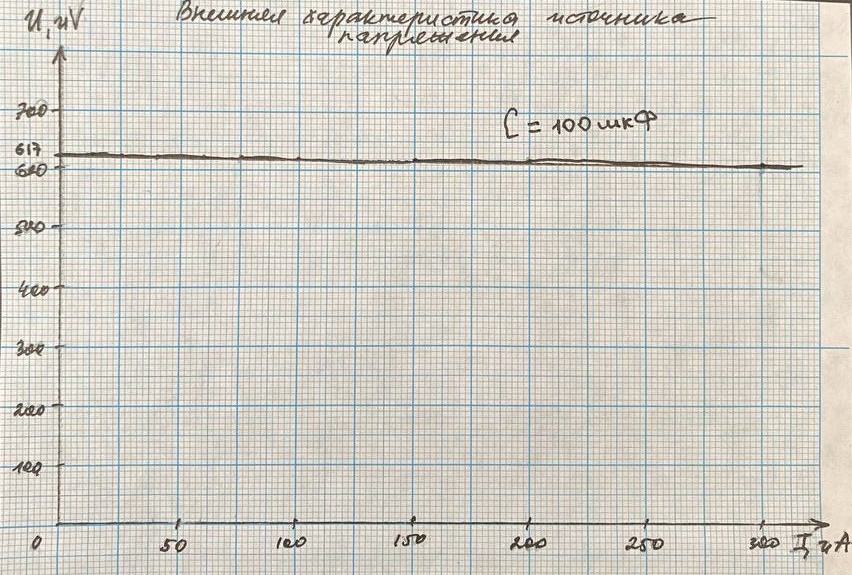 U, мV
Внешняя характеристика источника
напряжения
700
C = 100 мкФ
617
600
500
400
300
200
100
0 50 100 150 200 250 300 I, мA